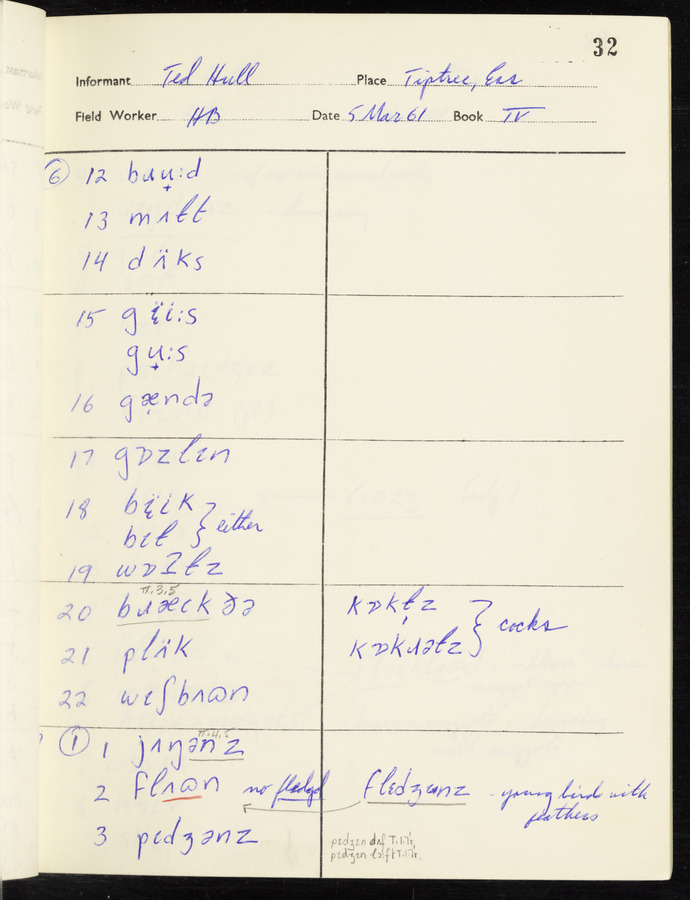 32
Informant Ted Hull Place Tiptree, Ess
Field Worker HB Date 5 Mar 61 Book IV
⑥ 12 bɹu̟ː d
13 mɪɫt
14 dʌ̈ks
15 gɪ̈iːs
gu̟ːs
16 gæ̣ndə
17 gɒzlɪn
18 bɪ̈ik
bɪɫ } either
19 wɒtɫz
π.3.5
20 bɹæɛk ðə kɒkɫ̩z
21 plʌ̈k kɒkɹəɫz } cocks
22 wɪʃbɹɷn
① 1 jʌŋənz π.4.5
2 flɪɷn no fledged flɛdʒənz - young bird with feathers
3 pɪdʒənz pɪdʒɪn dʌf T.I.7r.
pɪdʒɪn lɔːft T.I.7r.